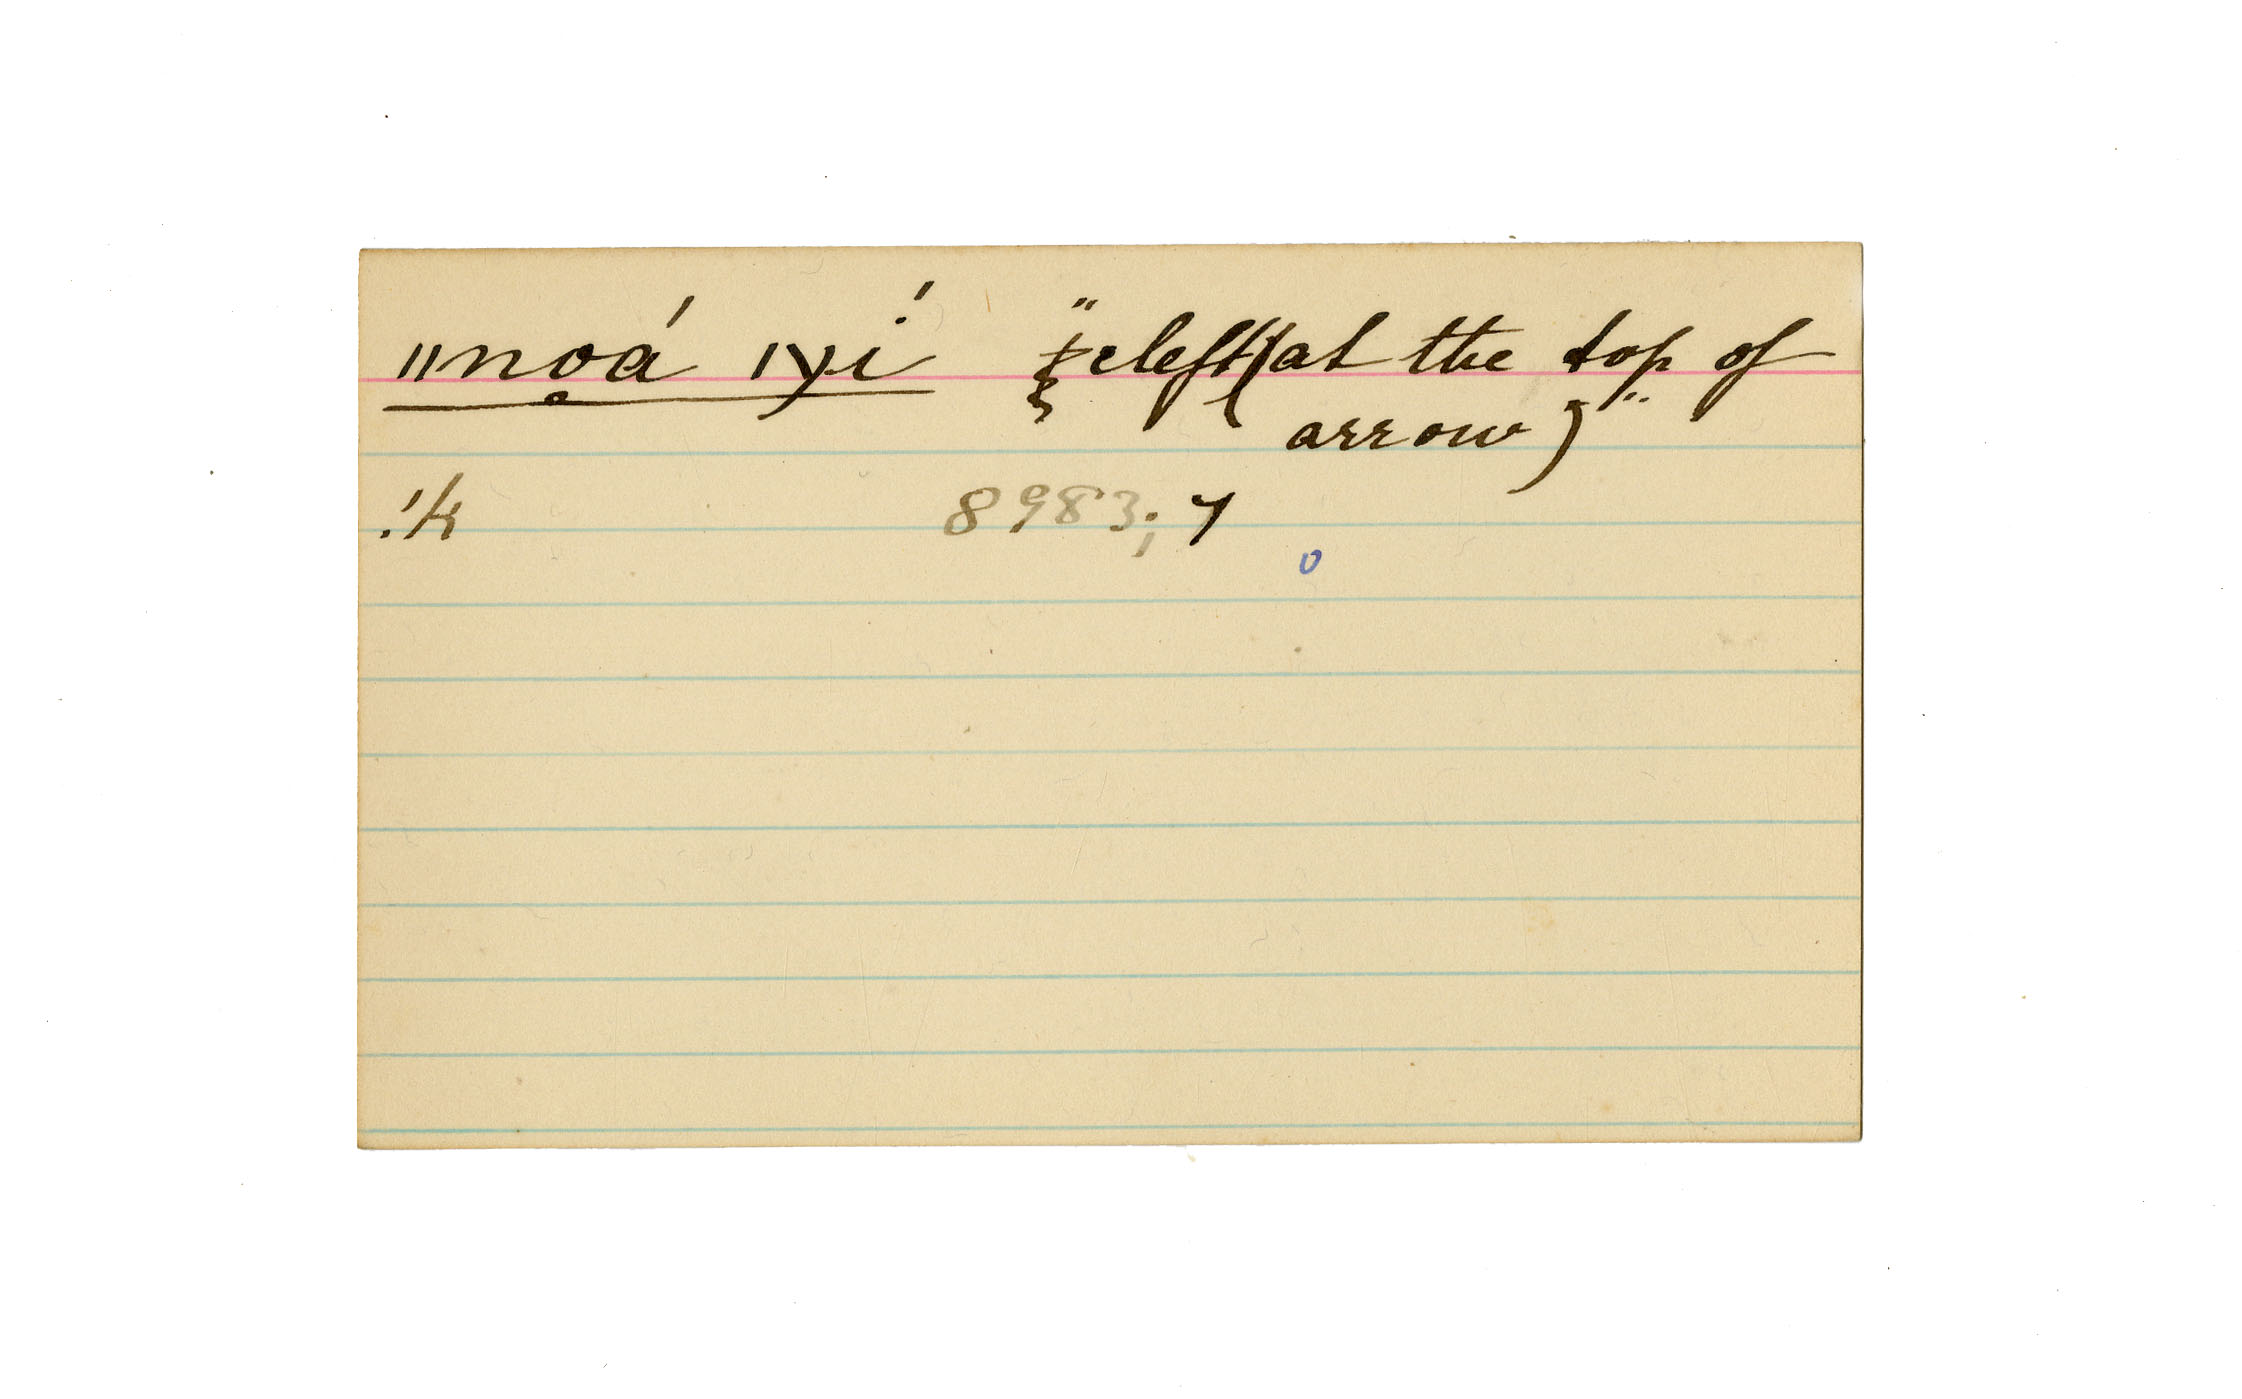 ǁno̥á ǀχí "cleft (at the top of
arrow)"
!k 8983; 7